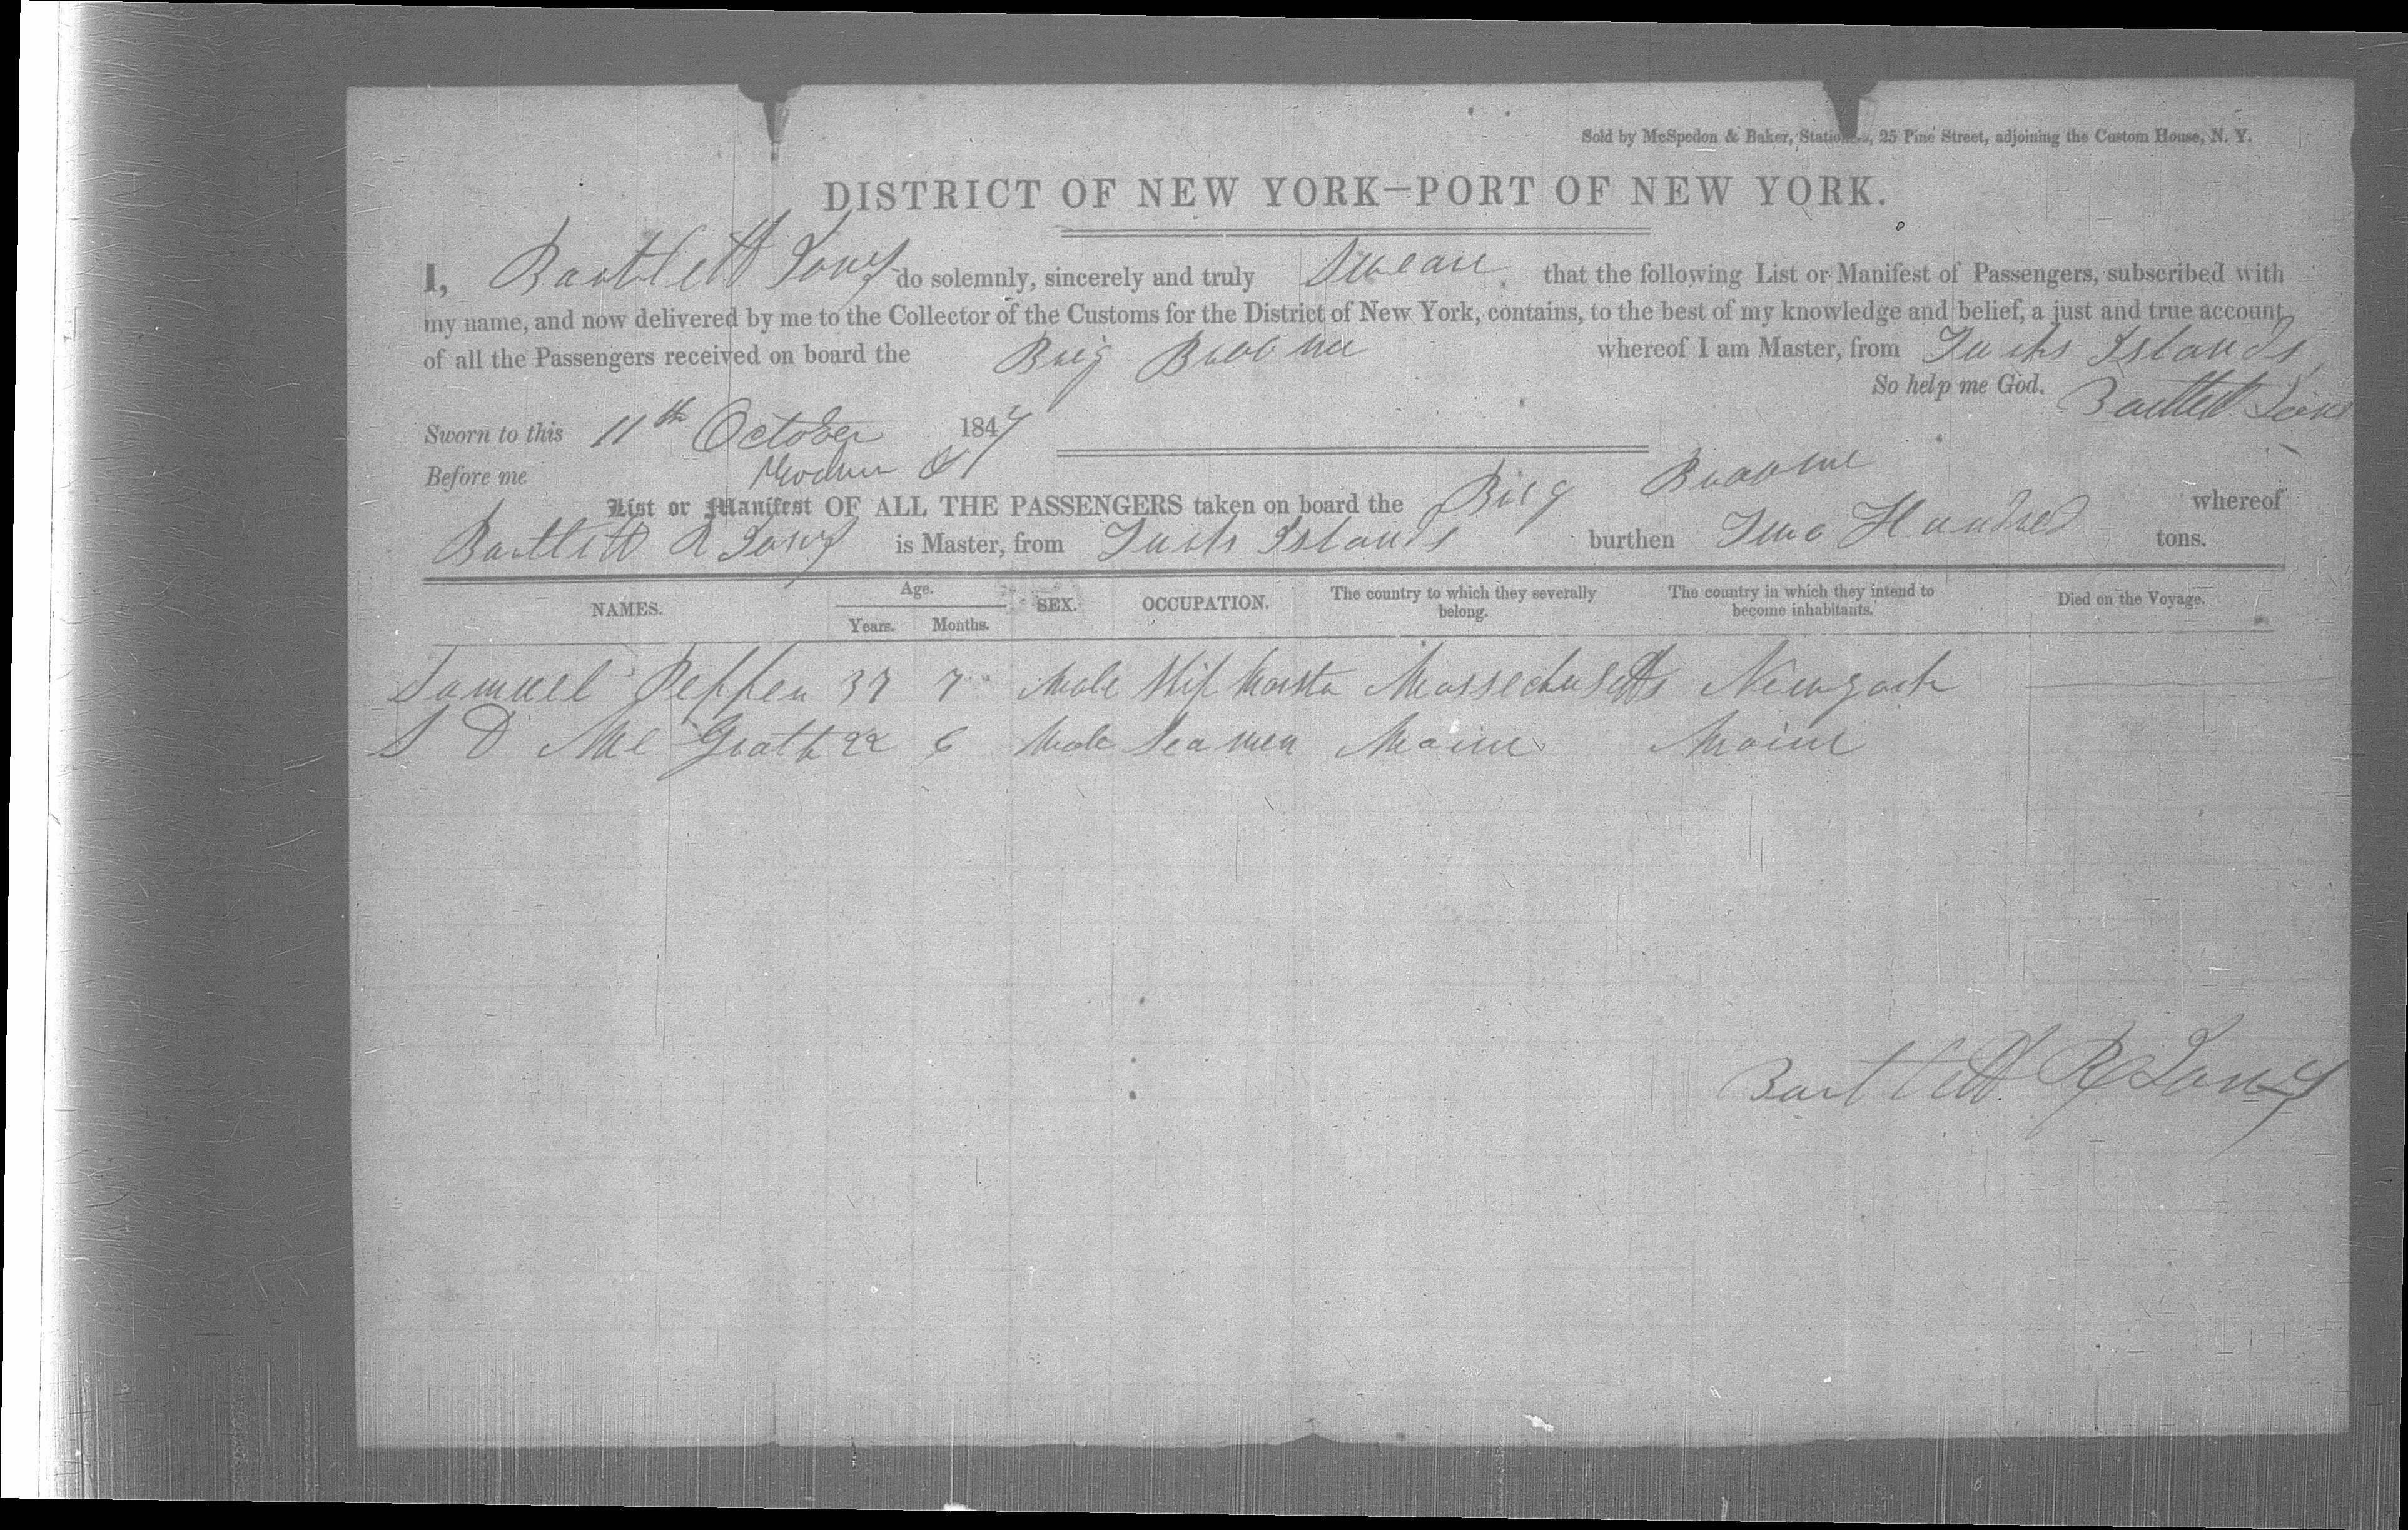 Sold by McSpedon & Baker, Stationers, 25 Pine Street, adjoining the Custom House, N. Y.
DISTRICT OF NEW YORK—PORT OF NEW YORK.
I, Bartlett do solemnly, sincerely and truly Swear that the following List or Manifest of Passengers, subscribed with
my name, and now delivered by me to the Collector of the Customs for the District of New York, contains, to the best of my knowledge and belief, a just and true account
of all the Passengers received on board the Brig whereof I am Master, from Turks Islands
So help me God. Bartlett
Sworn to this 11th October 1847
Before me
List or Manifest OF ALL THE PASSENGERS taken on board the Brig whereof
Bartlett R is Master, from Turks Islands burthen Two Hundred tons.
NAMES. Age. SEX. OCCUPATION. The country to which they severally belong. The country in which they intend to become inhabitants. Died on the Voyage.
Years. Months.
Samuel 37 7 Male Ship Master Massechusetts Newyork
S D Mc Grath 22 6 Male Seamen Maine Maine
Bartlett R